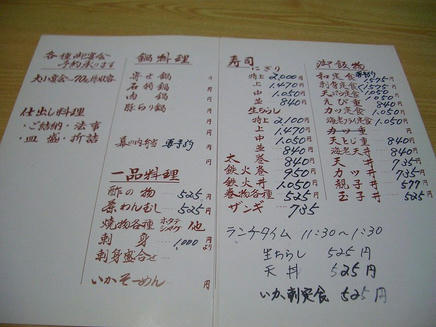 各種御宴会
予約承ります
大小宴会〜70名様収容
仕出し料理
・ご結納・法事
・皿盛・折詰
鍋料理
寄せ鍋 円
石狩鍋 円
肉鍋 円
豚ちり鍋 円
幕の内弁当 要予約 円
一品料理
酢の物 525円
茶わんむし 525円
焼物各種 ホタテ シャケ 他
刺身 1,000円より
刺身盛合せ
いかそーめん 円
寿司
にぎり
特上 2,000円
上 1,470円
中 1,050円
並 840円
生ちらし
特上 2,100円
上 1,470円
中 1,050円
並 840円
太巻 840円
鉄火巻 950円
鉄火丼 1,050円
巻物各種 525円
ザンギ 735円
御飯物
和定食 要予約 1575円
刺身定食 1575円
天ぷら定食 1,050円
えび重 840円
カツ定食 1,050円
海老フライ定食 1,050円
カツ重 840円
天とじ重 840円
海老天丼 840円
天丼 735円
カツ丼 735円
親子丼 577円
玉子丼 525円
ランチタイム 11:30〜1:30
生ちらし 525円
天丼 525円
いか刺定食 525円